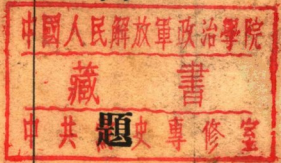 中國人民解放軍政治學院
藏書
中共題史專修室